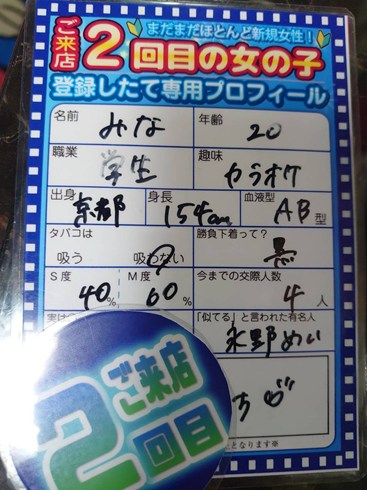 まだまだほとんど新規女性！
ご来店2回目の女の子
登録したて専用プロフィール
名前 みな 年齢 20
職業 学生 趣味 カラオケ
出身 京都 身長 154cm 血液型 AB型
タバコは 吸う 吸わない 勝負下着って？ 黒
S度 40% M度 60% 今までの交際人数 4人
「似てる」と言われた有名人
永野めい
となります※
ご来店
2回目